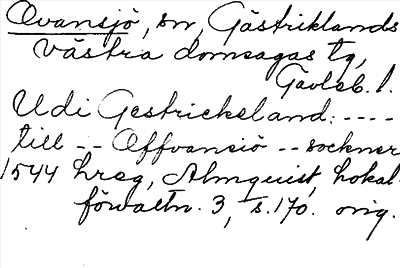 Ovansjö, sn, Gästriklands
västra domsagas tg,
Gävleb. l.
Udi Gestricksland: ----
till -- Offvansiö -- sockner
1544 hreg, Almquist, Lokal-
förvaltn. 3, s. 170. orig.